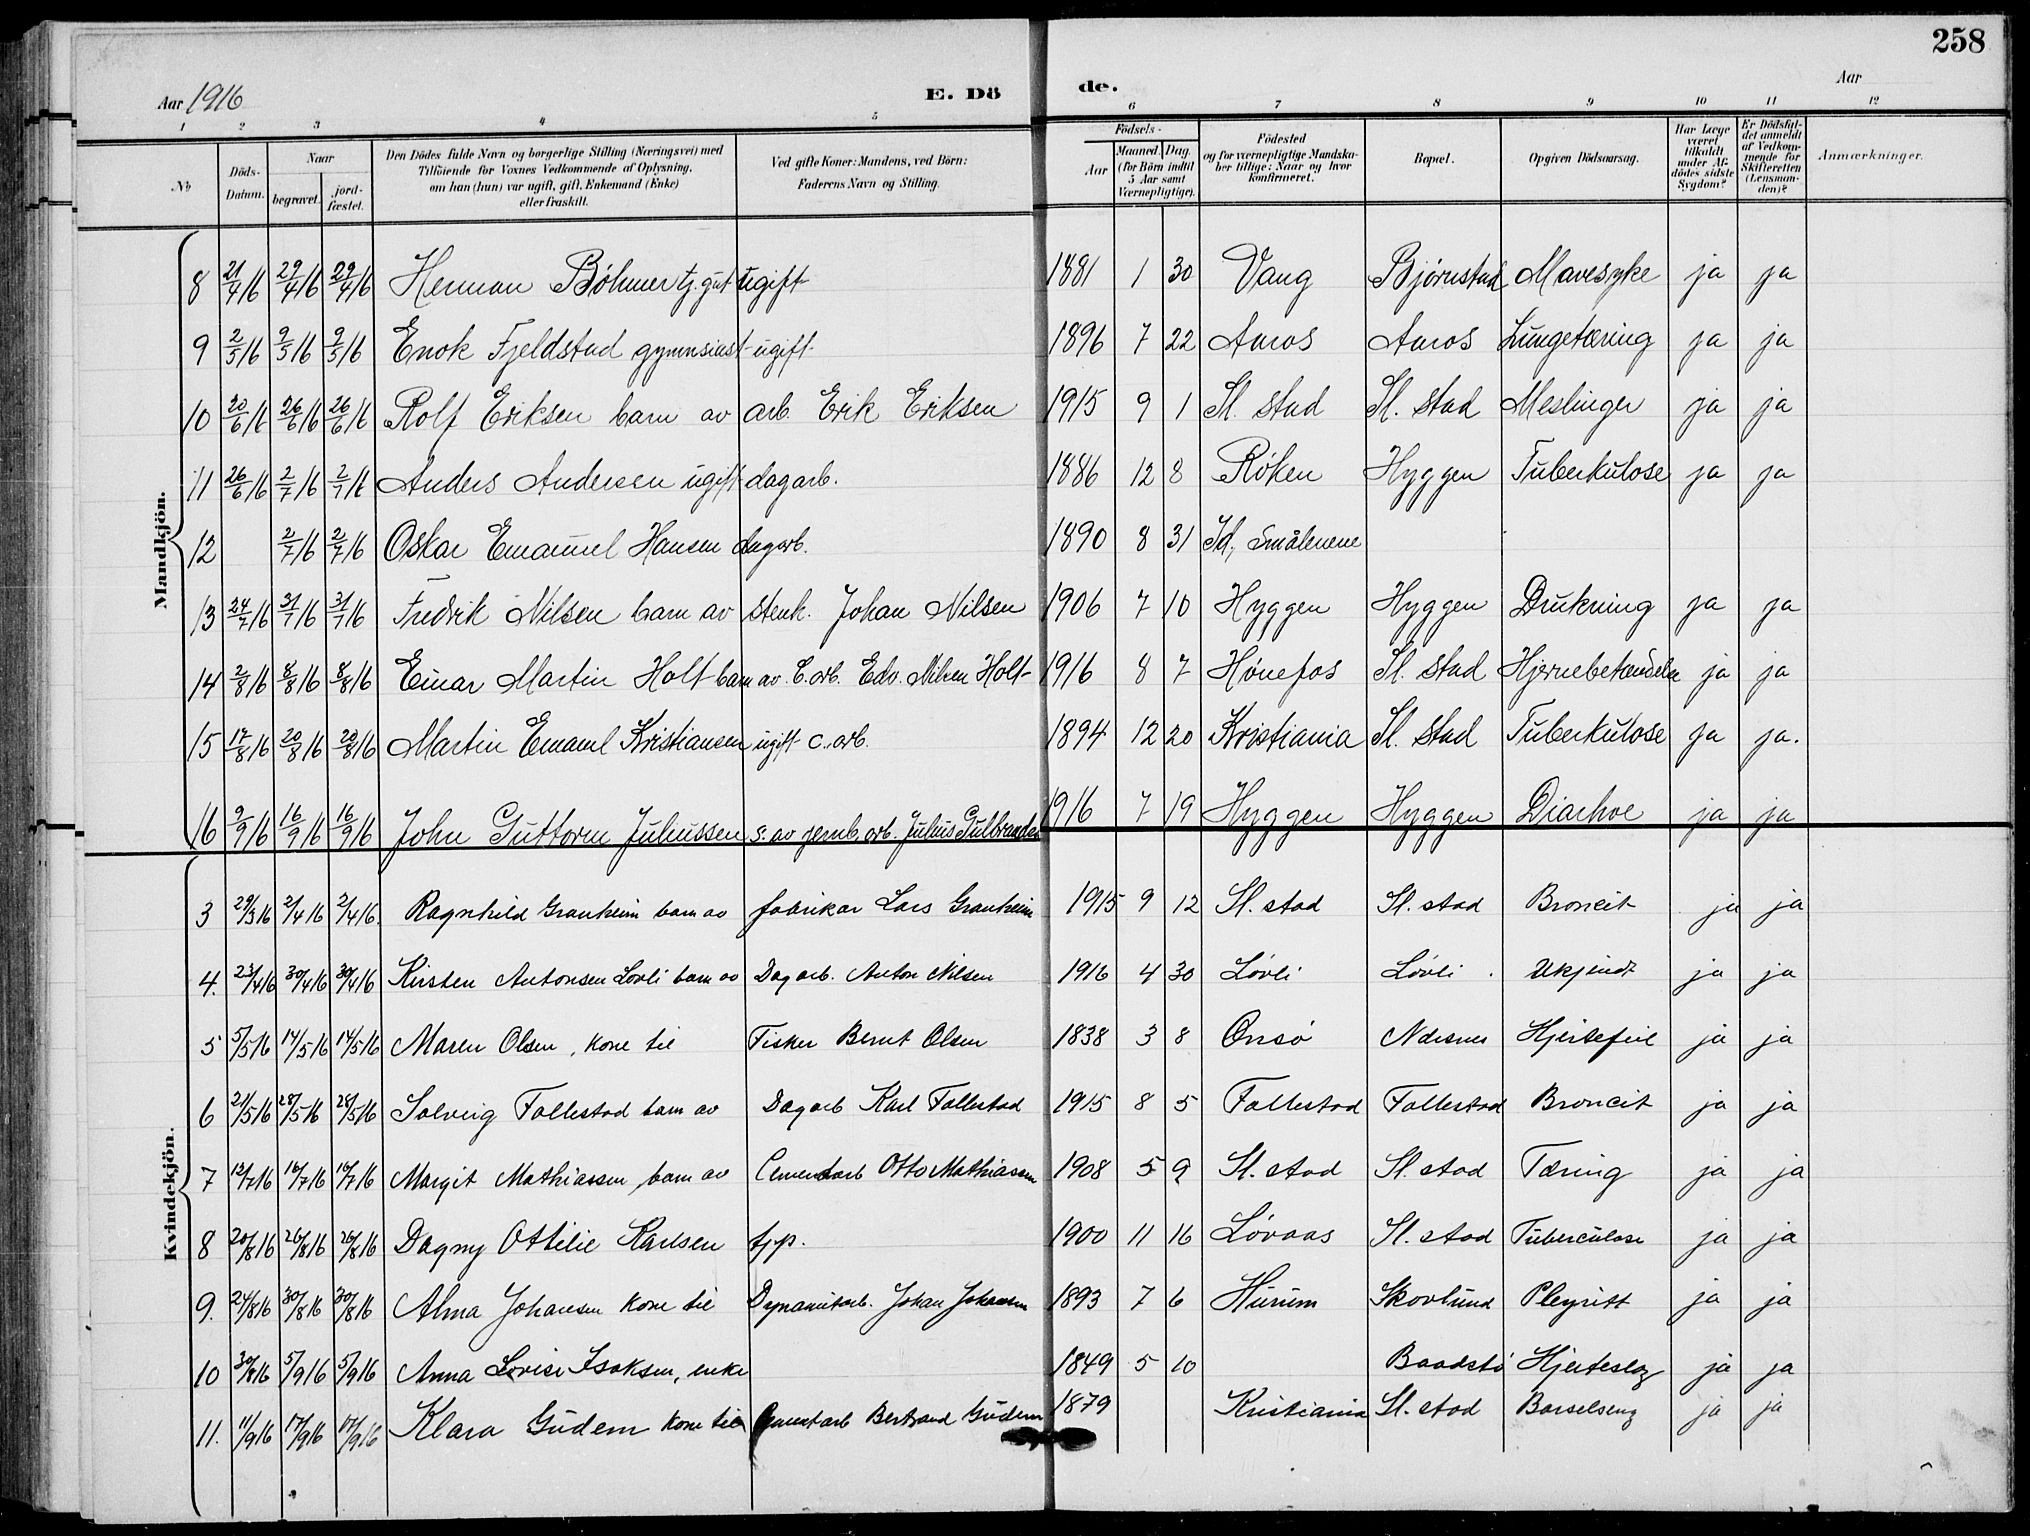 258
Aar 1916
E. Dö de.
Aar
1 2 3 4 5 6 7 8 9 10 11 12
No Döds-Datum. Naar begravet. jordfæstet. Den Dödes fulde Navn og borgerlige Stilling (Næringsvei) med Tilföiende for Voxnes Vedkommende af Oplysning, om han (hun) var ugift, gift, Enkemand (Enke) eller fraskilt. Ved gifte Koner: Mandens, ved Börn: Faderens Navn og Stilling. Födsels- Aar Maaned. Dag (for Börn indtil 5 Aar samt Værnepligtige). Födested og for værnepligtige Mandskaber tillige: Naar og hvor konfirmeret. Bopæl. Opgiven Dödsaarsag. Har Læge været tilkaldt under Afdödes sidste Sygdom? Er Dödsfaldet anmeldt af Vedkommende for Skifteretten (Lensmanden)? Anmærkninger.
Mandkjön.
8 21/4 16 29/4 16 29/4 16 Herman Böhmer tj. gut ugift 1881 1 30 Vang Bjørnstad Mavesyke ja ja
9 2/5 16 9/5 16 9/5 16 Enok Fjeldstad gymnsiast ugift 1896 7 22 Aaros Aaros Lungetæring ja ja
10 20/6 16 26/6 16 26/6 16 Rolf Eriksen barn av arb. Erik Eriksen 1915 9 1 Sl. stad Sl. stad Meslinger ja ja
11 26/6 16 2/7 16 2/7 16 Anders Andersen ugift dagarb. 1886 12 8 Røken Hyggen Tuberkulose ja ja
12 2/7 16 2/7 16 Oskar Emanuel Hansen dagarb. 1890 8 31 Id, Smålenene
13 24/7 16 31/7 16 31/7 16 Fredrik Nilsen barn av stenh. Johan Nilsen 1906 7 10 Hyggen Hyggen Drukning ja ja
14 2/8 16 8/8 16 8/8 16 Einar Martin Holt barn av C. arb. Edv. Nilsen Holt 1916 8 7 Hønefos Sl. stad Hjernebetændelse ja ja
15 17/8 16 20/8 16 20/8 16 Martin Emanl Kristiansen ugift c. arb. 1894 12 20 Kristiania Sl. stad Tuberkulose ja ja.
16 9/9 16 16/9 16 16/9 16 John Guttorm Juliussen s. av jernb. arb. Julius Gulbrandsen 1916 7 19 Hyggen Hyggen Diarhoe ja ja
Kvindekjön.
3 29/3 16 2/4 16 2/4 16. Ragnhild Granheim barn av fabrikar Lars Granheim 1915 9 12 Sl. stad Sl. stad Broncit ja ja
4. 23/4 16 30/4 16 30/4 16 Kirsten Antonsen Lovli barn av Dagarb. Anton Nilsen 1916 4 30 Løvli Løvli. Ukjendt ja ja
5 5/5 16 14/5 16 14/5 16 Maren Olsen, kone til Fisker Bernt Olsen 1838 3 8 Onsø Nærsnes Hjertefeil ja ja
6 21/5 16 28/5 16 28/5 16 Solveig Follestad barn av Dagarb Karl Follestad 1915 8 5 Follestad Follestad Broncit ja ja
7 12/7 16 16/7 16 16/7 16 Margit Mathiassen barn av Cementarb Otto Mathiassen 1908 5 9 Sl. stad Sl. stad Tæring ja ja
8 20/8 16 26/8 16 26/8 16 Dagny Ottilie Karlsen tjp. 1900 11 16 Løvaas Sl. stad Tuberculose ja ja
9. 24/8 16 30/8 16 30/8 16 Alma Johansen kone til Dynamitarb. Johan Johansen 1893 7 6 Hurum Skovlund Pleyritt ja ja
10 30/8 16 5/9 16 5/9 16 Anna Lovise Isaksen, enke 1849 5 10 Baadstø Hjerteslag ja ja
11. 11/9 16 17/9 16 17/9 16 Klara Gudem kone til Cementarb Bertrand Gudem 1879 Kristiania Sl. stad Barselseng ja ja